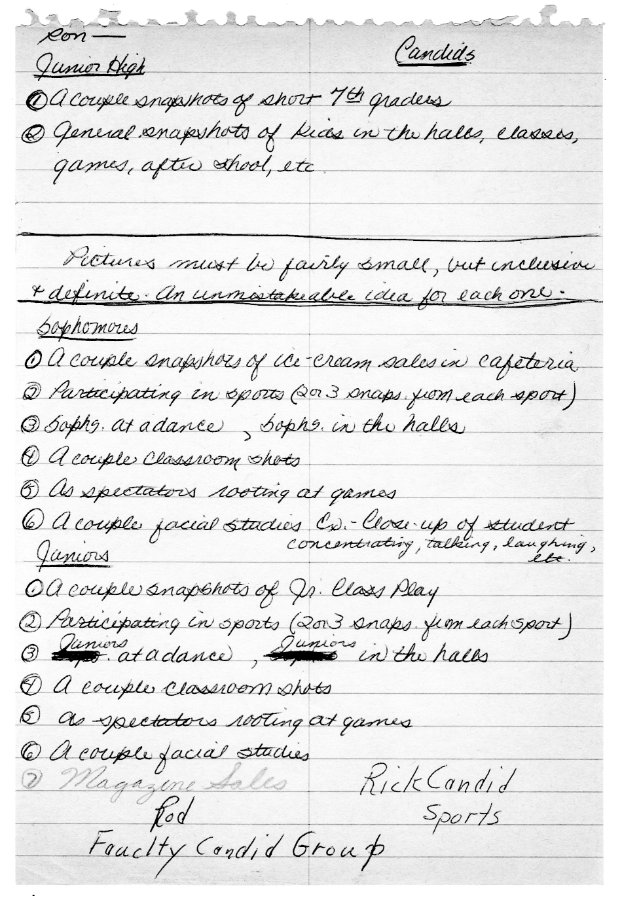 Ron —
Candids
Junior High
① A couple snapshots of short 7th graders
② General snapshots of kids in the halls, classes,
games, after shool, etc.
Pictures must be fairly small, but inclusive
+ definite. An unmistakeable idea for each one.
Sophomores
① A couple snapshots of ice-cream sales in cafeteria
② Participating in sports (2 or 3 snaps. from each sport)
③ Sophs. at a dance, Sophs. in the halls
④ A couple classroom shots
⑤ As spectators rooting at games
⑥ A couple facial studies Ex.- Close-up of student
concentrating, talking, laughing,
etc.
Juniors
① A couple snapshots of Jr. Class Play
② Participating in sports (2 or 3 snaps. from each sport)
③ Juniors at a dance, Juniors in the halls
④ A couple classroom shots
⑤ As spectators rooting at games
⑥ A couple facial studies
⑦ Magazine Sales
Rick Candid
Sports
Rod
Fauclty Candid Group